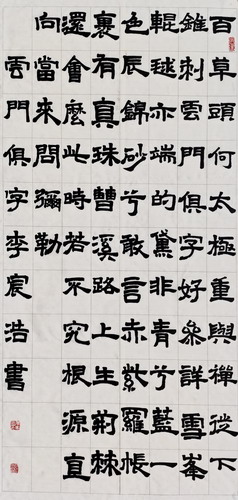 百草頭何太極重與禪從下
錐刺雲門俱字好參詳雪峯
輥毬亦端的黨非青兮藍一
色辰錦砂兮敢言赤紫羅帳
裏有真珠曹溪路上生荊棘
還會麼此時若不究根源直
向當來問彌勒
雲門俱字李宸浩書